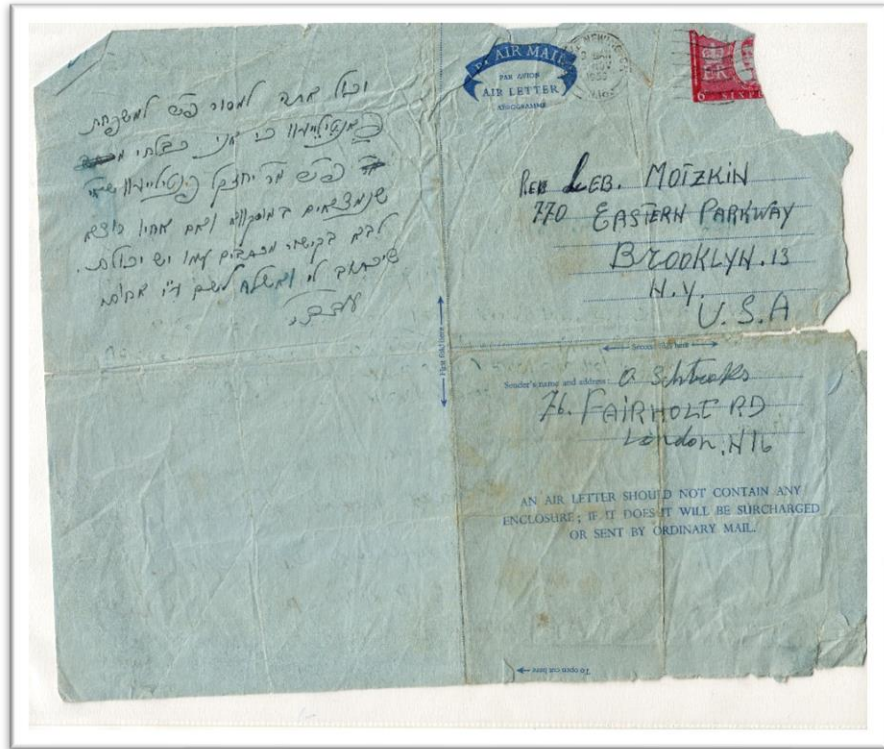 וכול אתה למסור פ"ש למשפחת
כי אני קבלתי
פ"ש מר יחזקל
שנמצאים במוסקווא ואם אחיו רוצה
לבא בקישור מכתבים עמו יש יכולת.
שיכתוב לי ואשלח לשם ע"י
BY AIR MAIL
PAR AVION
AIR LETTER
AEROGRAMME
NOV
ER
6 SIXPE
REB LEB. MOTZKIN
770 EASTERN PARKWAY
BROOKLYN.13
N.Y.
U.S.A
First fold here
Second fold here
Sender's name and address: A Schtroks
76. FAIRHOLT RD
London, N16
AN AIR LETTER SHOULD NOT CONTAIN ANY
ENCLOSURE; IF IT DOES IT WILL BE SURCHARGED
OR SENT BY ORDINARY MAIL.
To open cut here